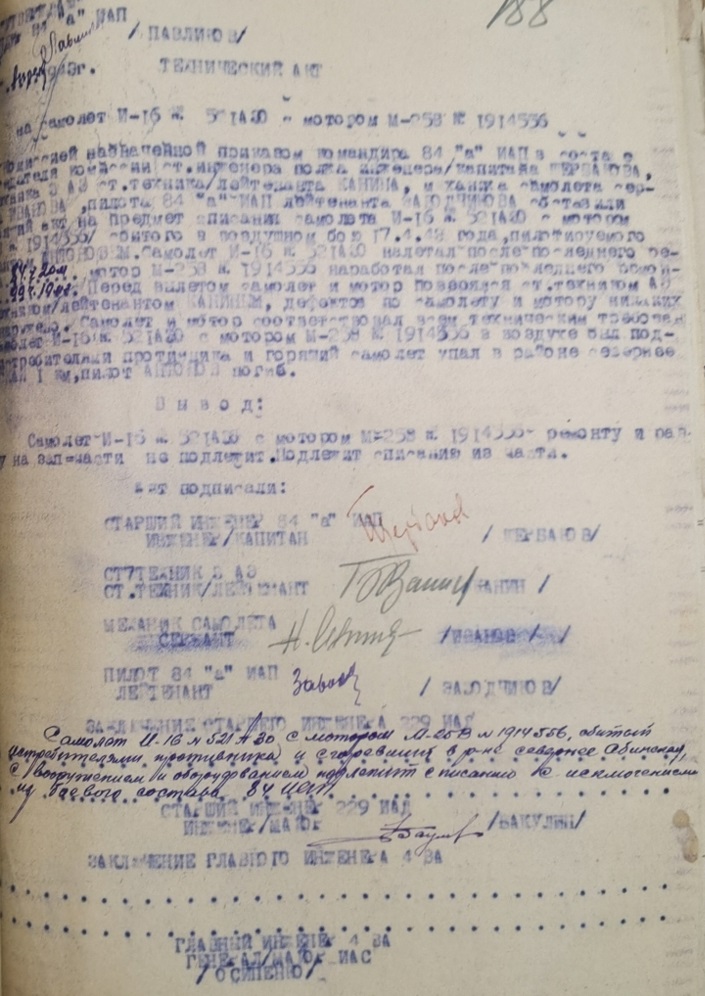 188
"а" ИАП
/ПАВЛИКОВ/
г. ТЕХНИЧЕСКИЙ АКТ
на самолет И-16 № 521А30 с мотором М-25В № 1914556
назначенной приказом командира 84 "а" ИАП в составе
комиссии ст.инженера полка инженера/капитана ЩЕРБАКОВА,
3 АЭ ст.техника/лейтенанта КАНИНА, механика самолета сер-
ИВАНОВА, пилота 84 "а" ИАП лейтенанта ЗАВОДЧИКОВА составили
акт на предмет списания самолета И-16 № 521А30 с мотором
1914556/ сбитого в воздушном бою 17.4.43 года, пилотируемого
АНТОНОВЫМ. Самолет И-16 № 521А30 налетал после последнего ре-
мотор М-25В № 1914556 наработал после последнего ремон-
Перед вылетом самолет и мотор проверялся ст.техником АЭ
техником/лейтенантом КАНИНЫМ, дефектов по самолету и мотору никаких
Самолет и мотор соответствовал всем техническим требован
И-16 № 521А30 с мотором М-25В № 1914556 в воздухе был под-
истребителями противника и горящий самолет упал в районе севернее
1 км, пилот АНТОНОВ погиб.
Вывод:
Самолет И-16 № 521А30 с мотором М-25В № 1914556 ремонту и раз-
на запчасти не подлежит. Подлежит списанию из части.
Акт подписали:
СТАРШИЙ ИНЖЕНЕР 84 "а" ИАП
ИНЖЕНЕР/КАПИТАН /ЩЕРБАКОВ/
СТ.ТЕХНИК 3 АЭ
СТ.ТЕХНИК/ЛЕЙТЕНАНТ КАНИН /
МЕХАНИК САМОЛЕТА
СЕРЖАНТ /ИВАНОВ/
ПИЛОТ 84 "а" ИАП
ЛЕЙТЕНАНТ / ЗАВОДЧИКОВ/
ЗАКЛЮЧЕНИЕ СТАРШЕГО ИНЖЕНЕРА 229 ИАД
Самолет И-16 № 521А30 с мотором М-25В № 1914556, сбитый
истребителями противника и сгоревший в р-не севернее Абинская,
с вооружением и оборудованием подлежит списанию с исключением
из боевого состава 84 ИАП
СТАРШИЙ ИНЖЕНЕР 229 ИАД
ИНЖЕНЕР/МАЙОР /БАКУЛИН/
ЗАКЛЮЧЕНИЕ ГЛАВНОГО ИНЖЕНЕРА 4 ВА
ГЛАВНЫЙ ИНЖЕНЕР 4 ВА
ГЕНЕРАЛ/МАЙОР ИАС
/ОСИПЕНКО/